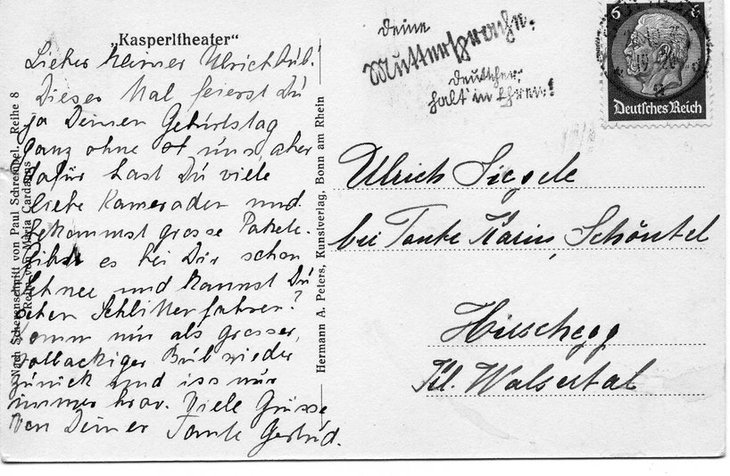 „Kasperltheater"
Lieber kleiner Ulrichbub!
Dieses Mal feierst Du
ja Deinen Geburtstag
ganz ohne uns, aber
dafür hast Du viele
liebe Kameraden und
bekommst grosse Pakete.
Gibt es bei Dir schon
Schnee und kannst Du
Schlittenfahren?
Komm nur als grosser,
vollbackiger Bub wieder
zurück und iss nur
immer brav. Viele Grüsse
von Deiner Tante Gertrud.
Nach Scherenschnitt von Paul Schreppel. Reihe 8
Reime von Maria Cardauns
Hermann A. Peters, Kunstverlag, Bonn am Rhein
Deine
Muttersprache,
Deutscher,
halt in Ehren!
6
Deutsches Reich
Ulrich Siegele
bei Tante Karin, Schöntel
Hirschegg
Kl. Walsertal